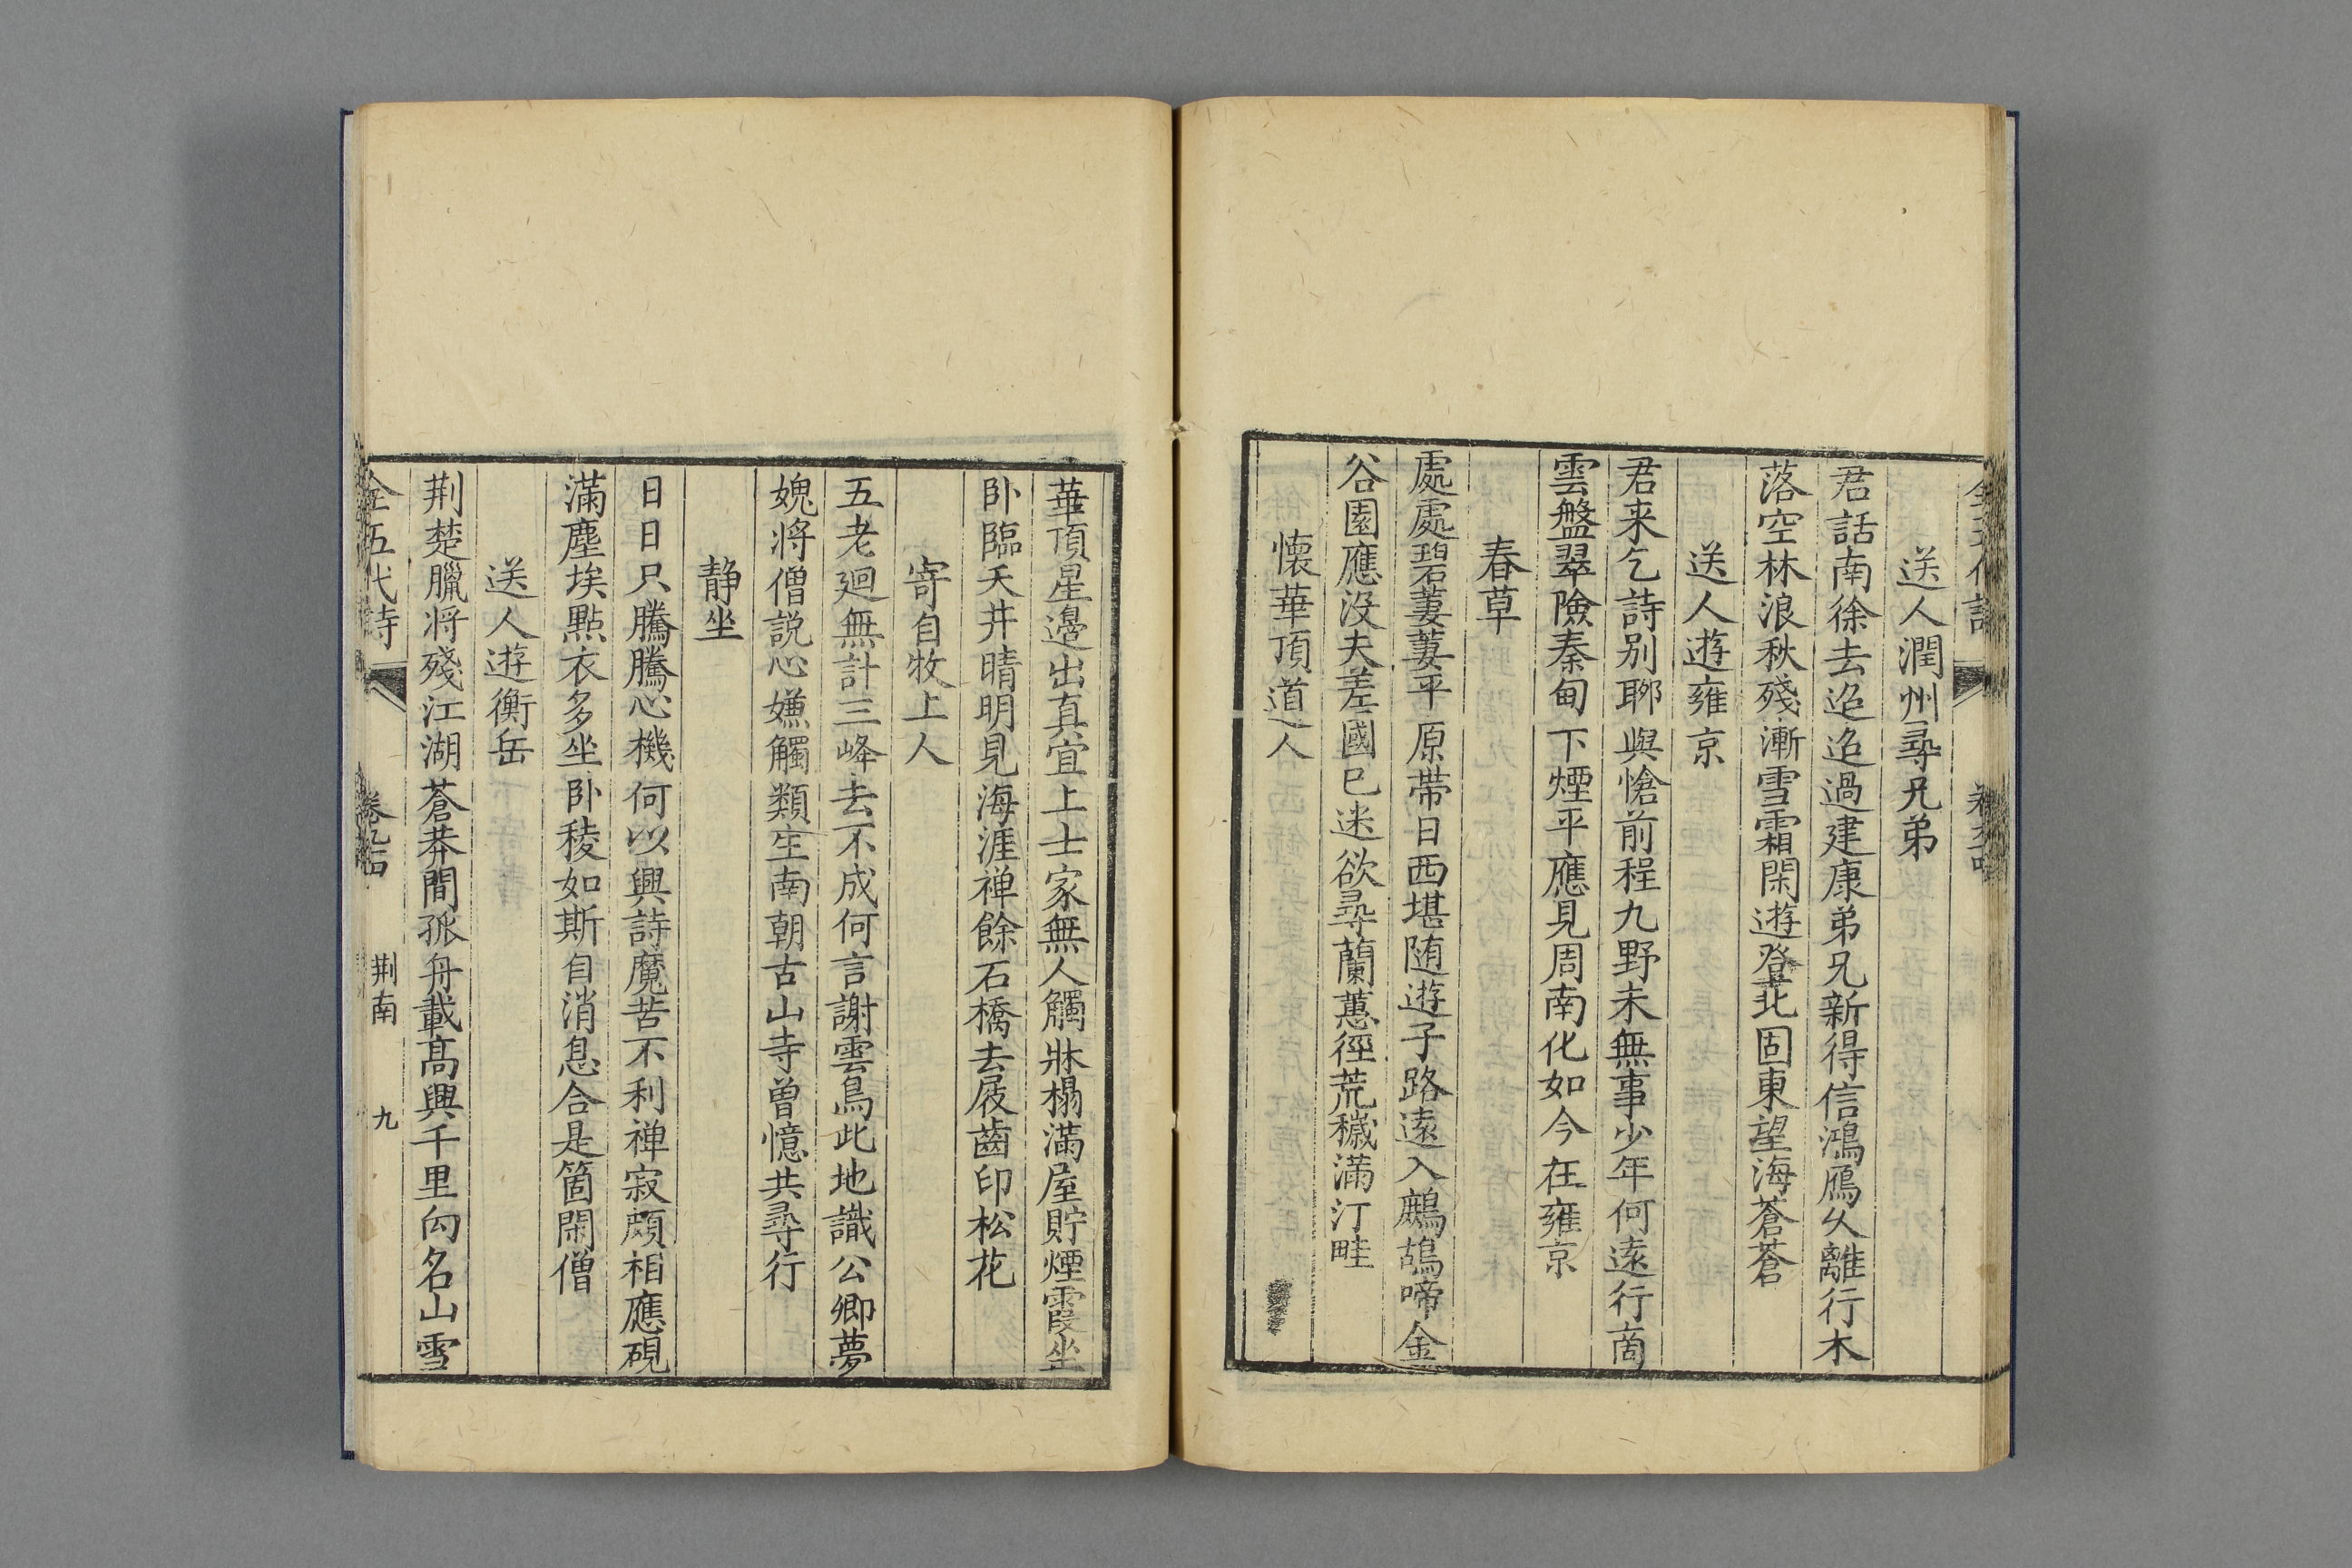 送人潤州尋兄弟
君話南徐去迢迢過建康弟兄新得信鴻鴈久離行木
落空林浪秋殘漸雪霜閑遊登北固東望海蒼蒼
送人遊雍京
君来乞詩别聊與愴前程九野未無事少年何遠行商
雲盤翠險秦甸下煙平應見周南化如今在雍京
春草
處處碧萋萋平原帶日西堪随遊子路遠入鷓鴣啼金
谷園應没夫差國已迷欲尋蘭蕙徑荒穢滿汀畦
懐華頂道人
華頂星邊出真宜上士家無人觸牀榻滿屋貯煙霞坐
卧臨天井晴明見海涯禅餘石橋去屐齒印松花
寄自牧上人
五老廻無計三峰去不成何言謝雲鳥此地識公卿夢
媿將僧説心嫌觸類生南朝古山寺曾憶共尋行
静坐
日日只騰騰心機何以興詩魔苦不利禅寂頗相應硯
滿塵埃點衣多坐卧稜如斯自消息合是箇閑僧
送人遊衡岳
荆楚臘将殘江湖蒼莽間孤舟載髙興千里向名山雪
全五代詩 卷九四 荆南 九